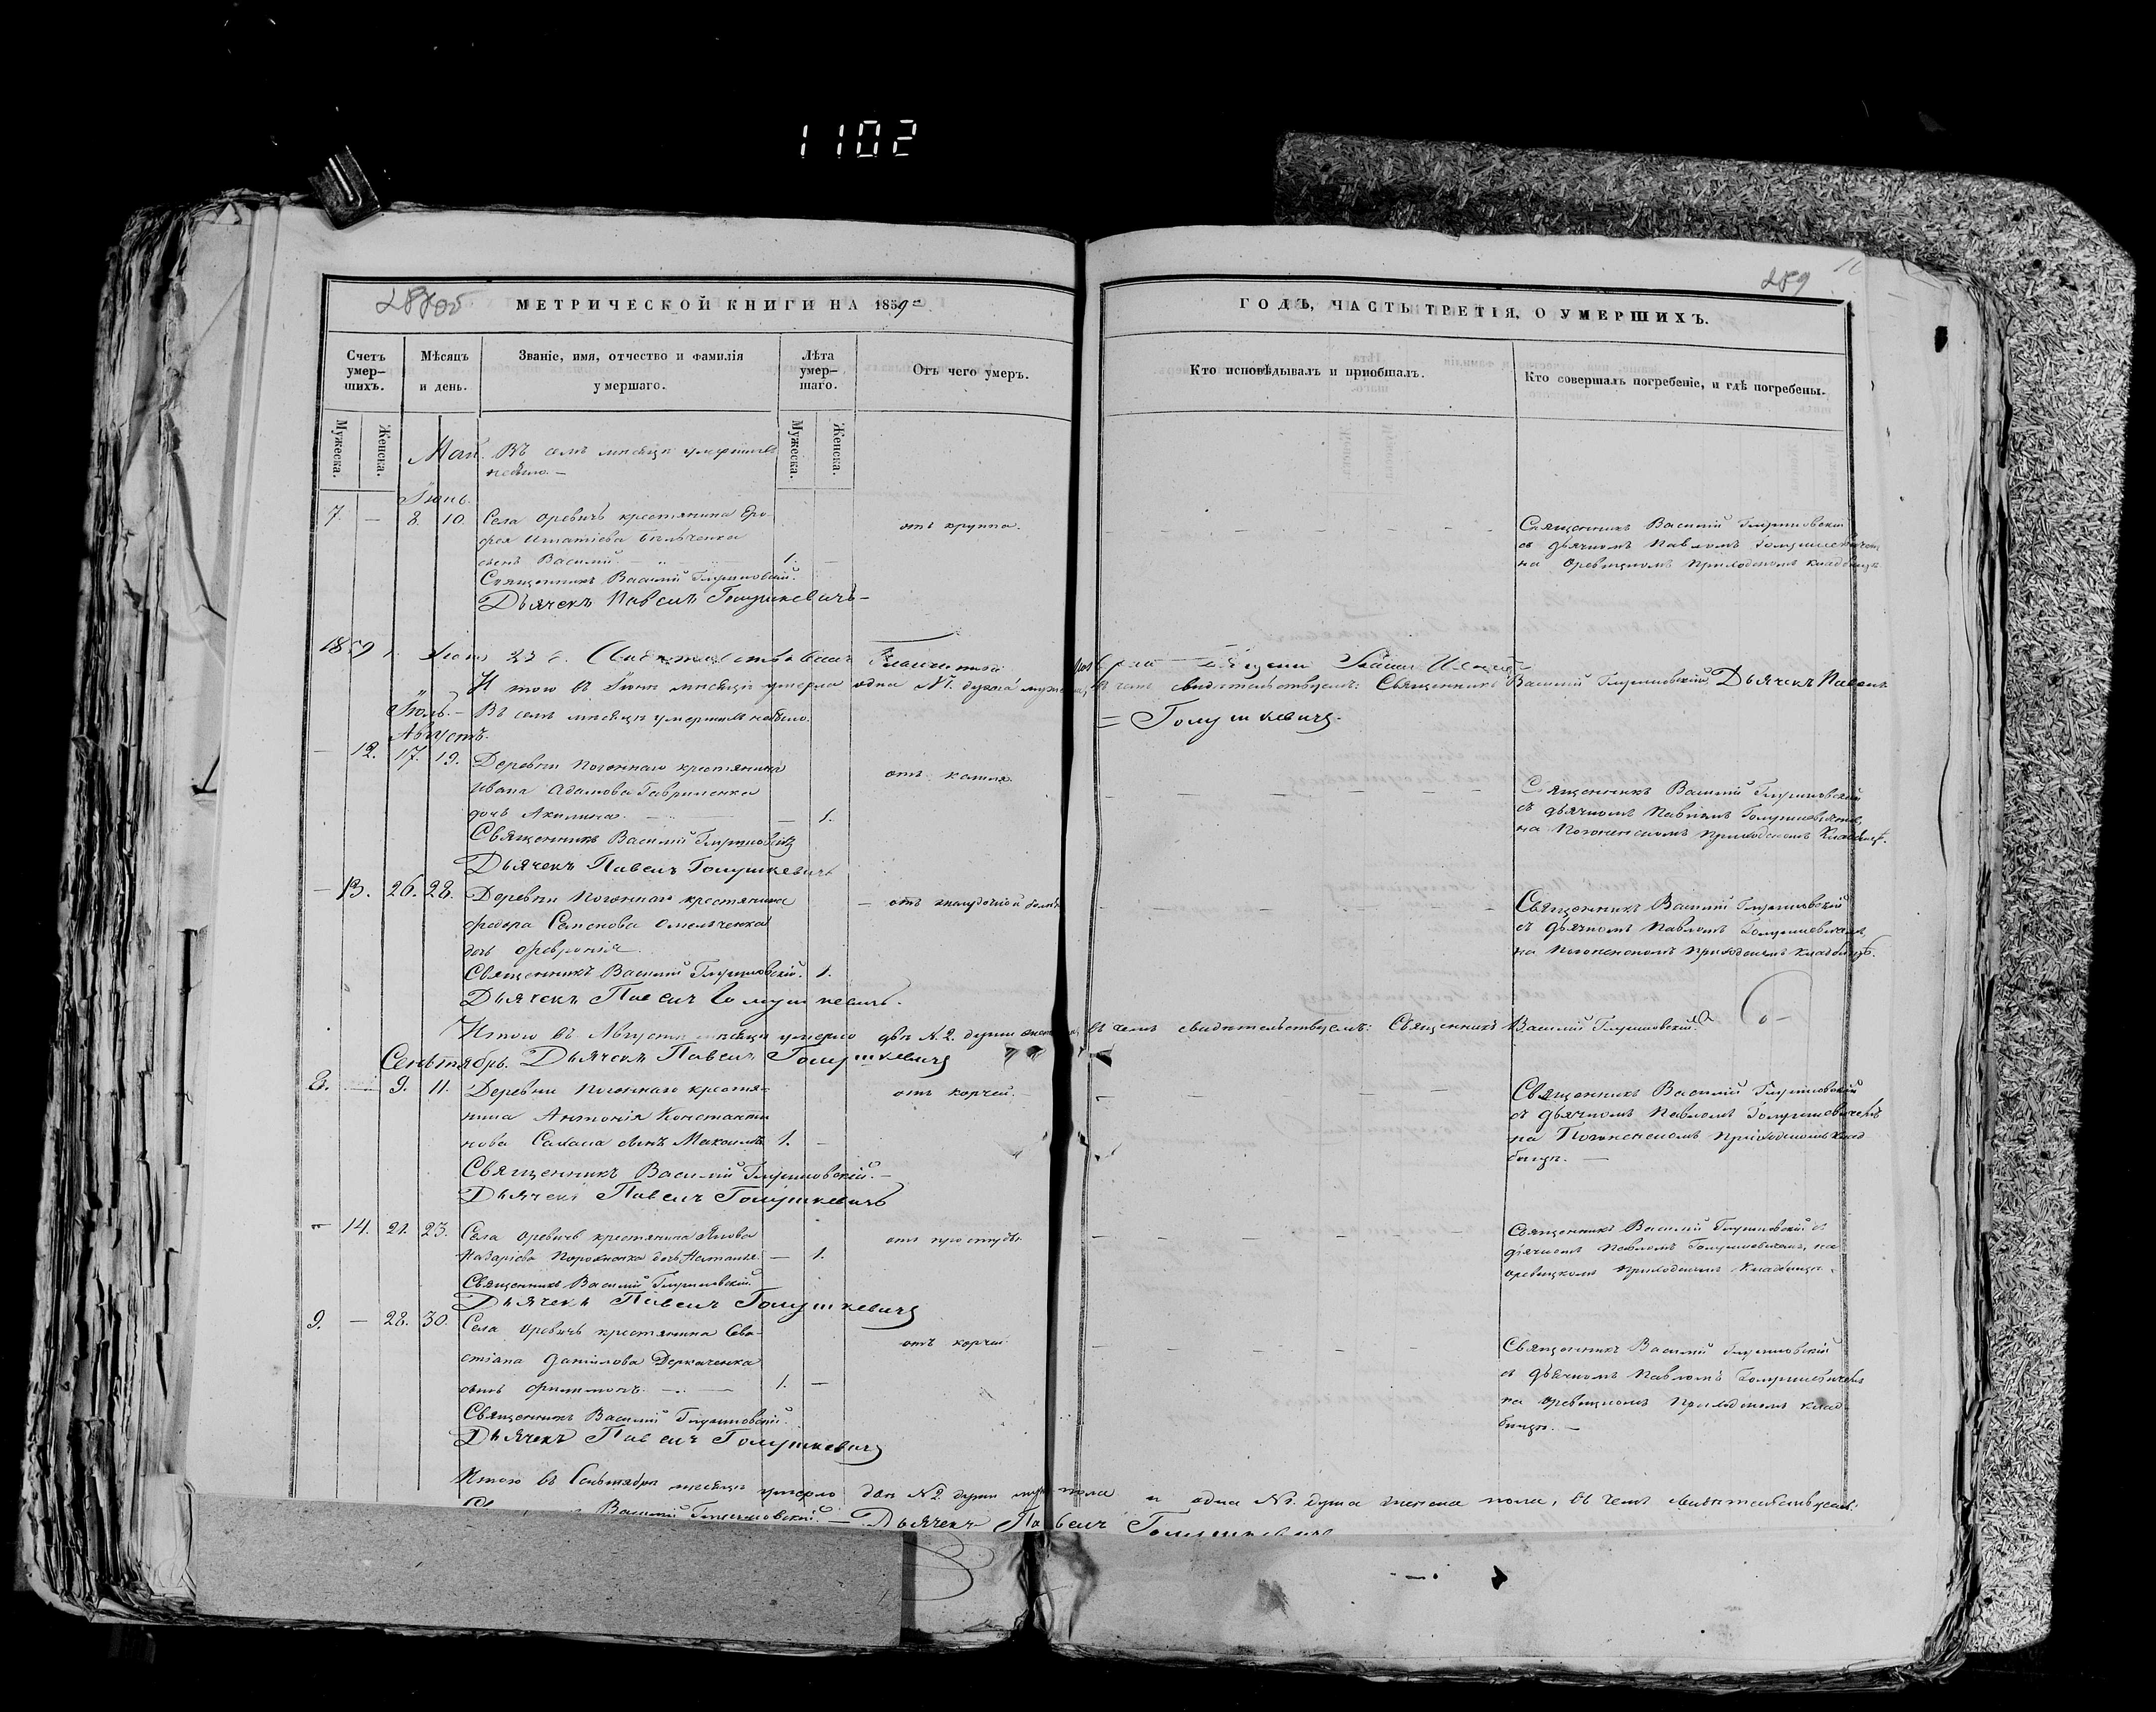 1102
289
МЕТРИЧЕСКОЙ КНИГИ НА 1859
ГОДЪ, ЧАСТЬ ТРЕТІЯ, О УМЕРШИХЪ.
Счетъ умер-
шихъ.
Мѣсяцъ
и день.
Званіе, имя, отчество и фамилія
умершаго.
Лѣта
умер-
шаго.
Отъ чего умеръ.
Кто исповѣдывалъ и приобщалъ.
Кто совершалъ погребеніе, и гдѣ погребены.
Мужеска.
Женска.
Мужеска.
Женска.
Май. Въ семъ мѣсяцѣ умершихъ
небыло. —
Іюнь.
7. — 8. 10. Села Оревичъ крестьянина Еро-
фея Игнатіева
сынъ Василій. 1. —
отъ круппа.
Священникъ Василій Глушковскій.
Дьячекъ Павелъ Голушкевичъ —
Священникъ Василій Глушковскій
съ дьячкомъ Павломъ Голушкевичемъ
на Оревицкомъ приходскомъ кладбищѣ
1859 г.
Итого въ Іюнѣ мѣсяцѣ умерла одна №1. душа муж. въ чемъ свидѣтельствуемъ: Священникъ Василій Глушковскій. Дьячекъ Павелъ
= Голушкевичъ.
Іюль. — Въ семъ мѣсяцѣ умершихъ небыло.
Августъ.
— 12. 17. 19. Деревни Погоннаго крестьянина
Ивана Адамова Гавриленка
дочь Акилина. — 1.
отъ кашля.
Священникъ Василій Глушковскій
Дьячекъ Павелъ Голушкевичъ
Священникъ Василій Глушковскій
съ дьячкомъ Павломъ Голушкевичемъ,
на Погоненскомъ приходскомъ кладбищѣ.
— 13. 26. 28. Деревни Погоннаго крестьянина
Федора Семенова Омельченка
дочь Февронія 1.
Священникъ Василій Глушковскій.
Дьячекъ Павелъ Голушкевичъ.
Священникъ Василій Глушковскій
съ дьячкомъ Павломъ Голушкевичемъ,
на Погоненскомъ приходскомъ кладбищѣ.
Итого въ Августѣ мѣсяцѣ умерло двѣ №2. души женска въ чемъ свидѣтельствуемъ: Священникъ Василій Глушковскій.
Сентябрь. Дьячекъ Павелъ Голушкевичъ
8. — 9. 11. Деревни Погоннаго крестья-
нина Антонія Константи
нова сынъ Максимъ 1. —
отъ корчей.
Священникъ Василій Глушковскій. —
Дьячекъ Павелъ Голушкевичъ
Священникъ Василій Глушковскій
съ дьячкомъ Павломъ Голушкевичемъ
на Погоненскомъ приходскомъ клад
бищѣ. —
— 14. 21. 23. Села Оревичъ крестьянина Якова
Назаріева дочь Наталія. — 1.
отъ простуды.
Священникъ Василій Глушковскій.
Дьячекъ Павелъ Голушкевичъ
Священникъ Василій Глушковскій съ
дьячкомъ Павломъ Голушкевичемъ, на
Оревицкомъ приходскомъ кладбищѣ.
9. — 28. 30. Села Оревичъ крестьянина Сева-
стіана Данілова Деркаченка
сынъ Филимонъ. 1. —
отъ корчей
Священникъ Василій Глушковскій.
Дьячекъ Павелъ Голушкевичъ
Священникъ Василій Глушковскій
съ дьячкомъ Павломъ Голушкевичемъ
на Оревицкомъ приходскомъ клад-
бищѣ. —
Итого въ Сентябрѣ мѣсяцѣ умерло двѣ №2. души муж пола и одна №1. душа женска пола, въ чемъ свидѣтельствуемъ:
Василій Глушковскій. — Дьячекъ Павелъ Голушкевичъ